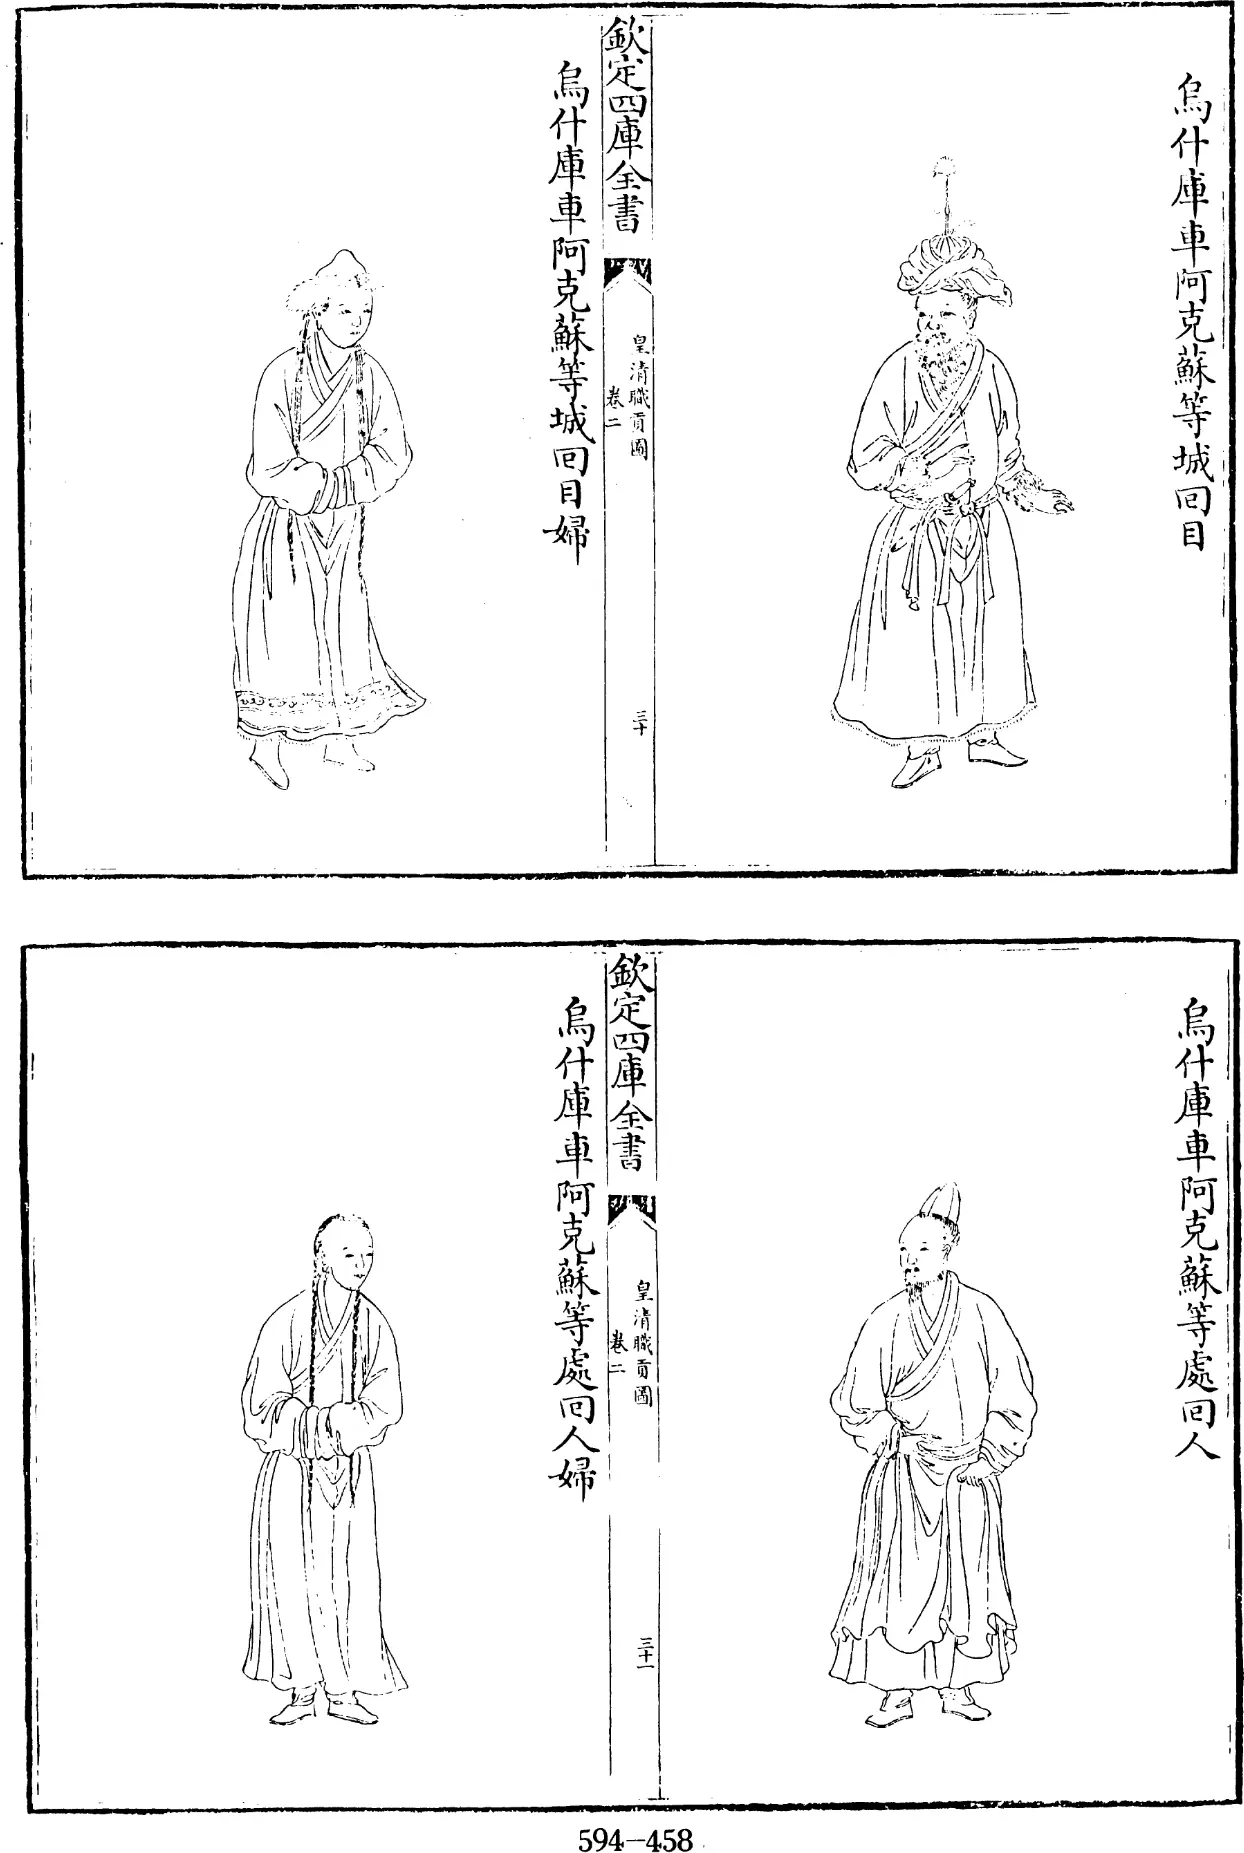 烏什庫車阿克蘇等城回目
欽定四庫全書
皇清職貢圖
卷二
三十
烏什庫車阿克蘇等城回目婦
烏什庫車阿克蘇等處回人
欽定四庫全書
皇清職貢圖
卷二
三十一
烏什庫車阿克蘇等處回人婦
594-458